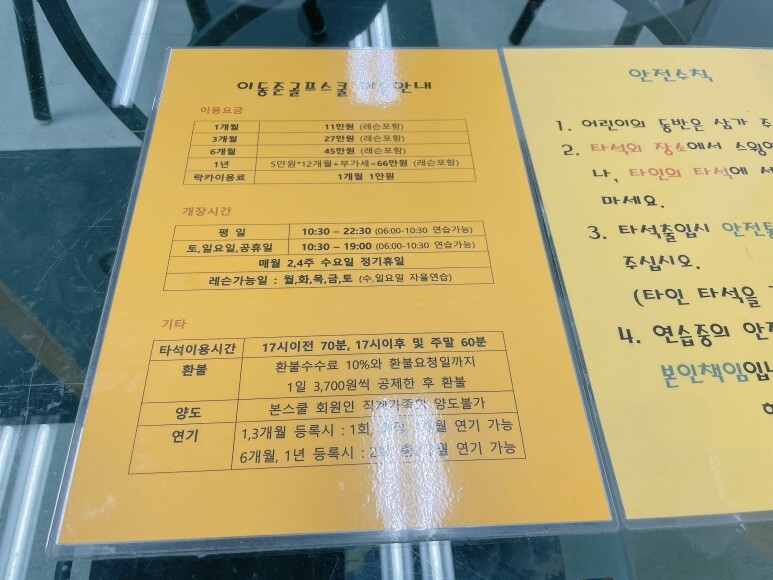 이동준골프스쿨 안내
이용요금
1개월 11만원 (레슨포함)
3개월 27만원 (레슨포함)
6개월 45만원 (레슨포함)
1년 5만원*12개월+부가세=66만원 (레슨포함)
락카이용료 1개월 1만원
개장시간
평 일 10:30 – 22:30 (06:00-10:30 연습가능)
토,일요일,공휴일 10:30 – 19:00 (06:00-10:30 연습가능)
매월 2,4주 수요일 정기휴일
레슨가능일 : 월,화,목,금,토 (수,일요일 자율연습)
기타
타석이용시간 17시이전 70분, 17시이후 및 주말 60분
환불 환불수수료 10%와 환불요청일까지
1일 3,700원씩 공제한 후 환불
양도 본스쿨 회원인 직계가족외 양도불가
연기 1,3개월 등록시 : 1회, 연기 가능
6개월, 1년 등록시 : 연기 가능
안전수칙
1. 어린이의 동반은 삼가
2. 타석의 장소에서
나, 타인의 타석에
마세요.
3. 타석출입시
주십시오.
(타인 타석을
4. 연습중의
본인책임입니